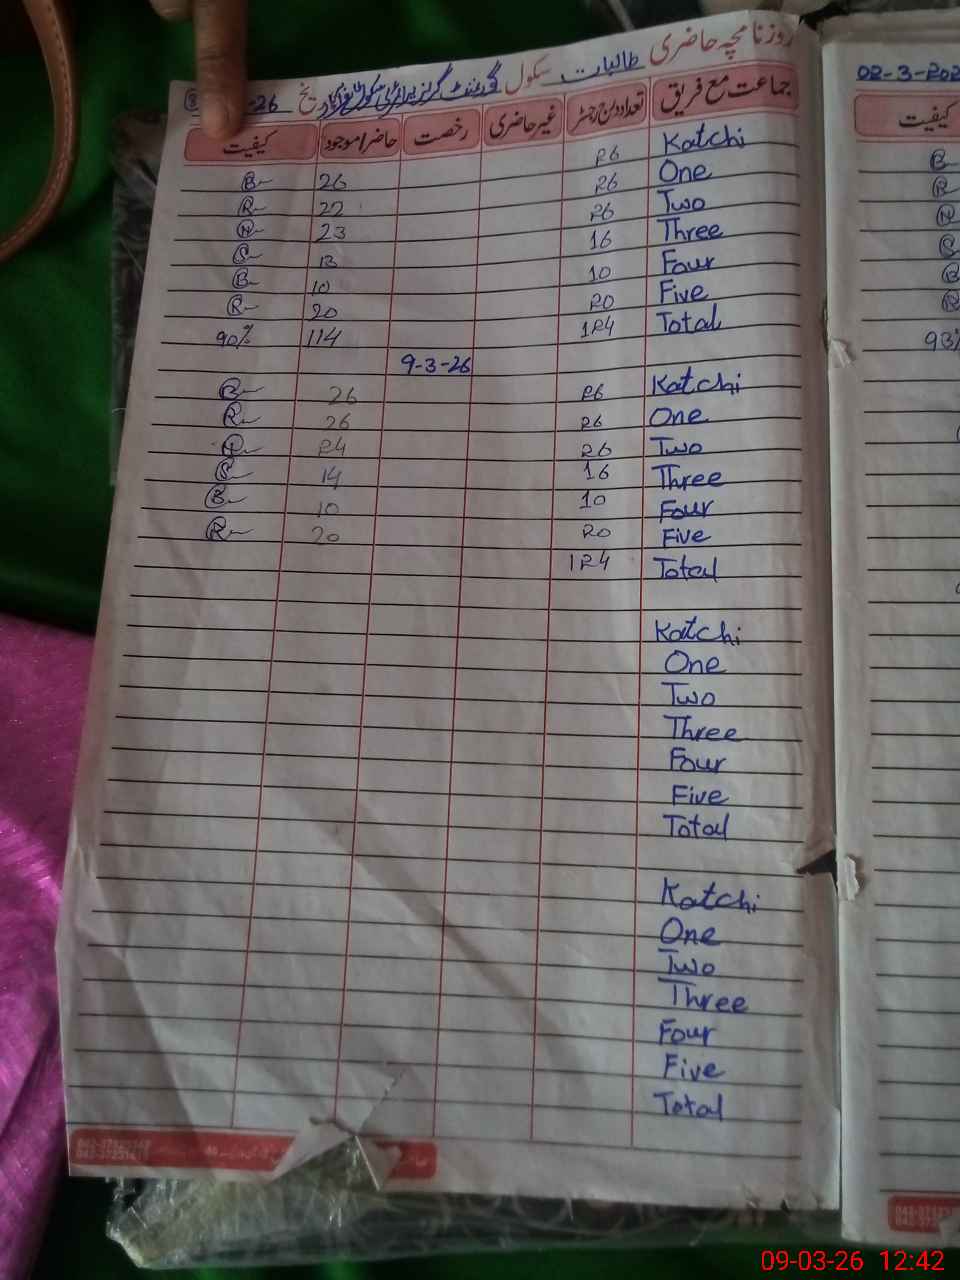 روزنامچہ حاضری طالبات سکول گورنمنٹ گرلز پرائمری سکول تاریخ 26
جماعت مع فریق تعداد مندرج رجسٹر غیر حاضری رخصت حاضر/موجود کیفیت
Katchi 26 26
One 26 22
Two 26 23
Three 16 13
Four 10 10
Five 20 20
Total 124 114 90%
9-3-26
Katchi 26 26
One 26 26
Two 26 24
Three 16 14
Four 10 10
Five 20 20
Total 124
Katchi
One
Two
Three
Four
Five
Total
Katchi
One
Two
Three
Four
Five
Total
کیفیت
93%
09-03-26 12:42